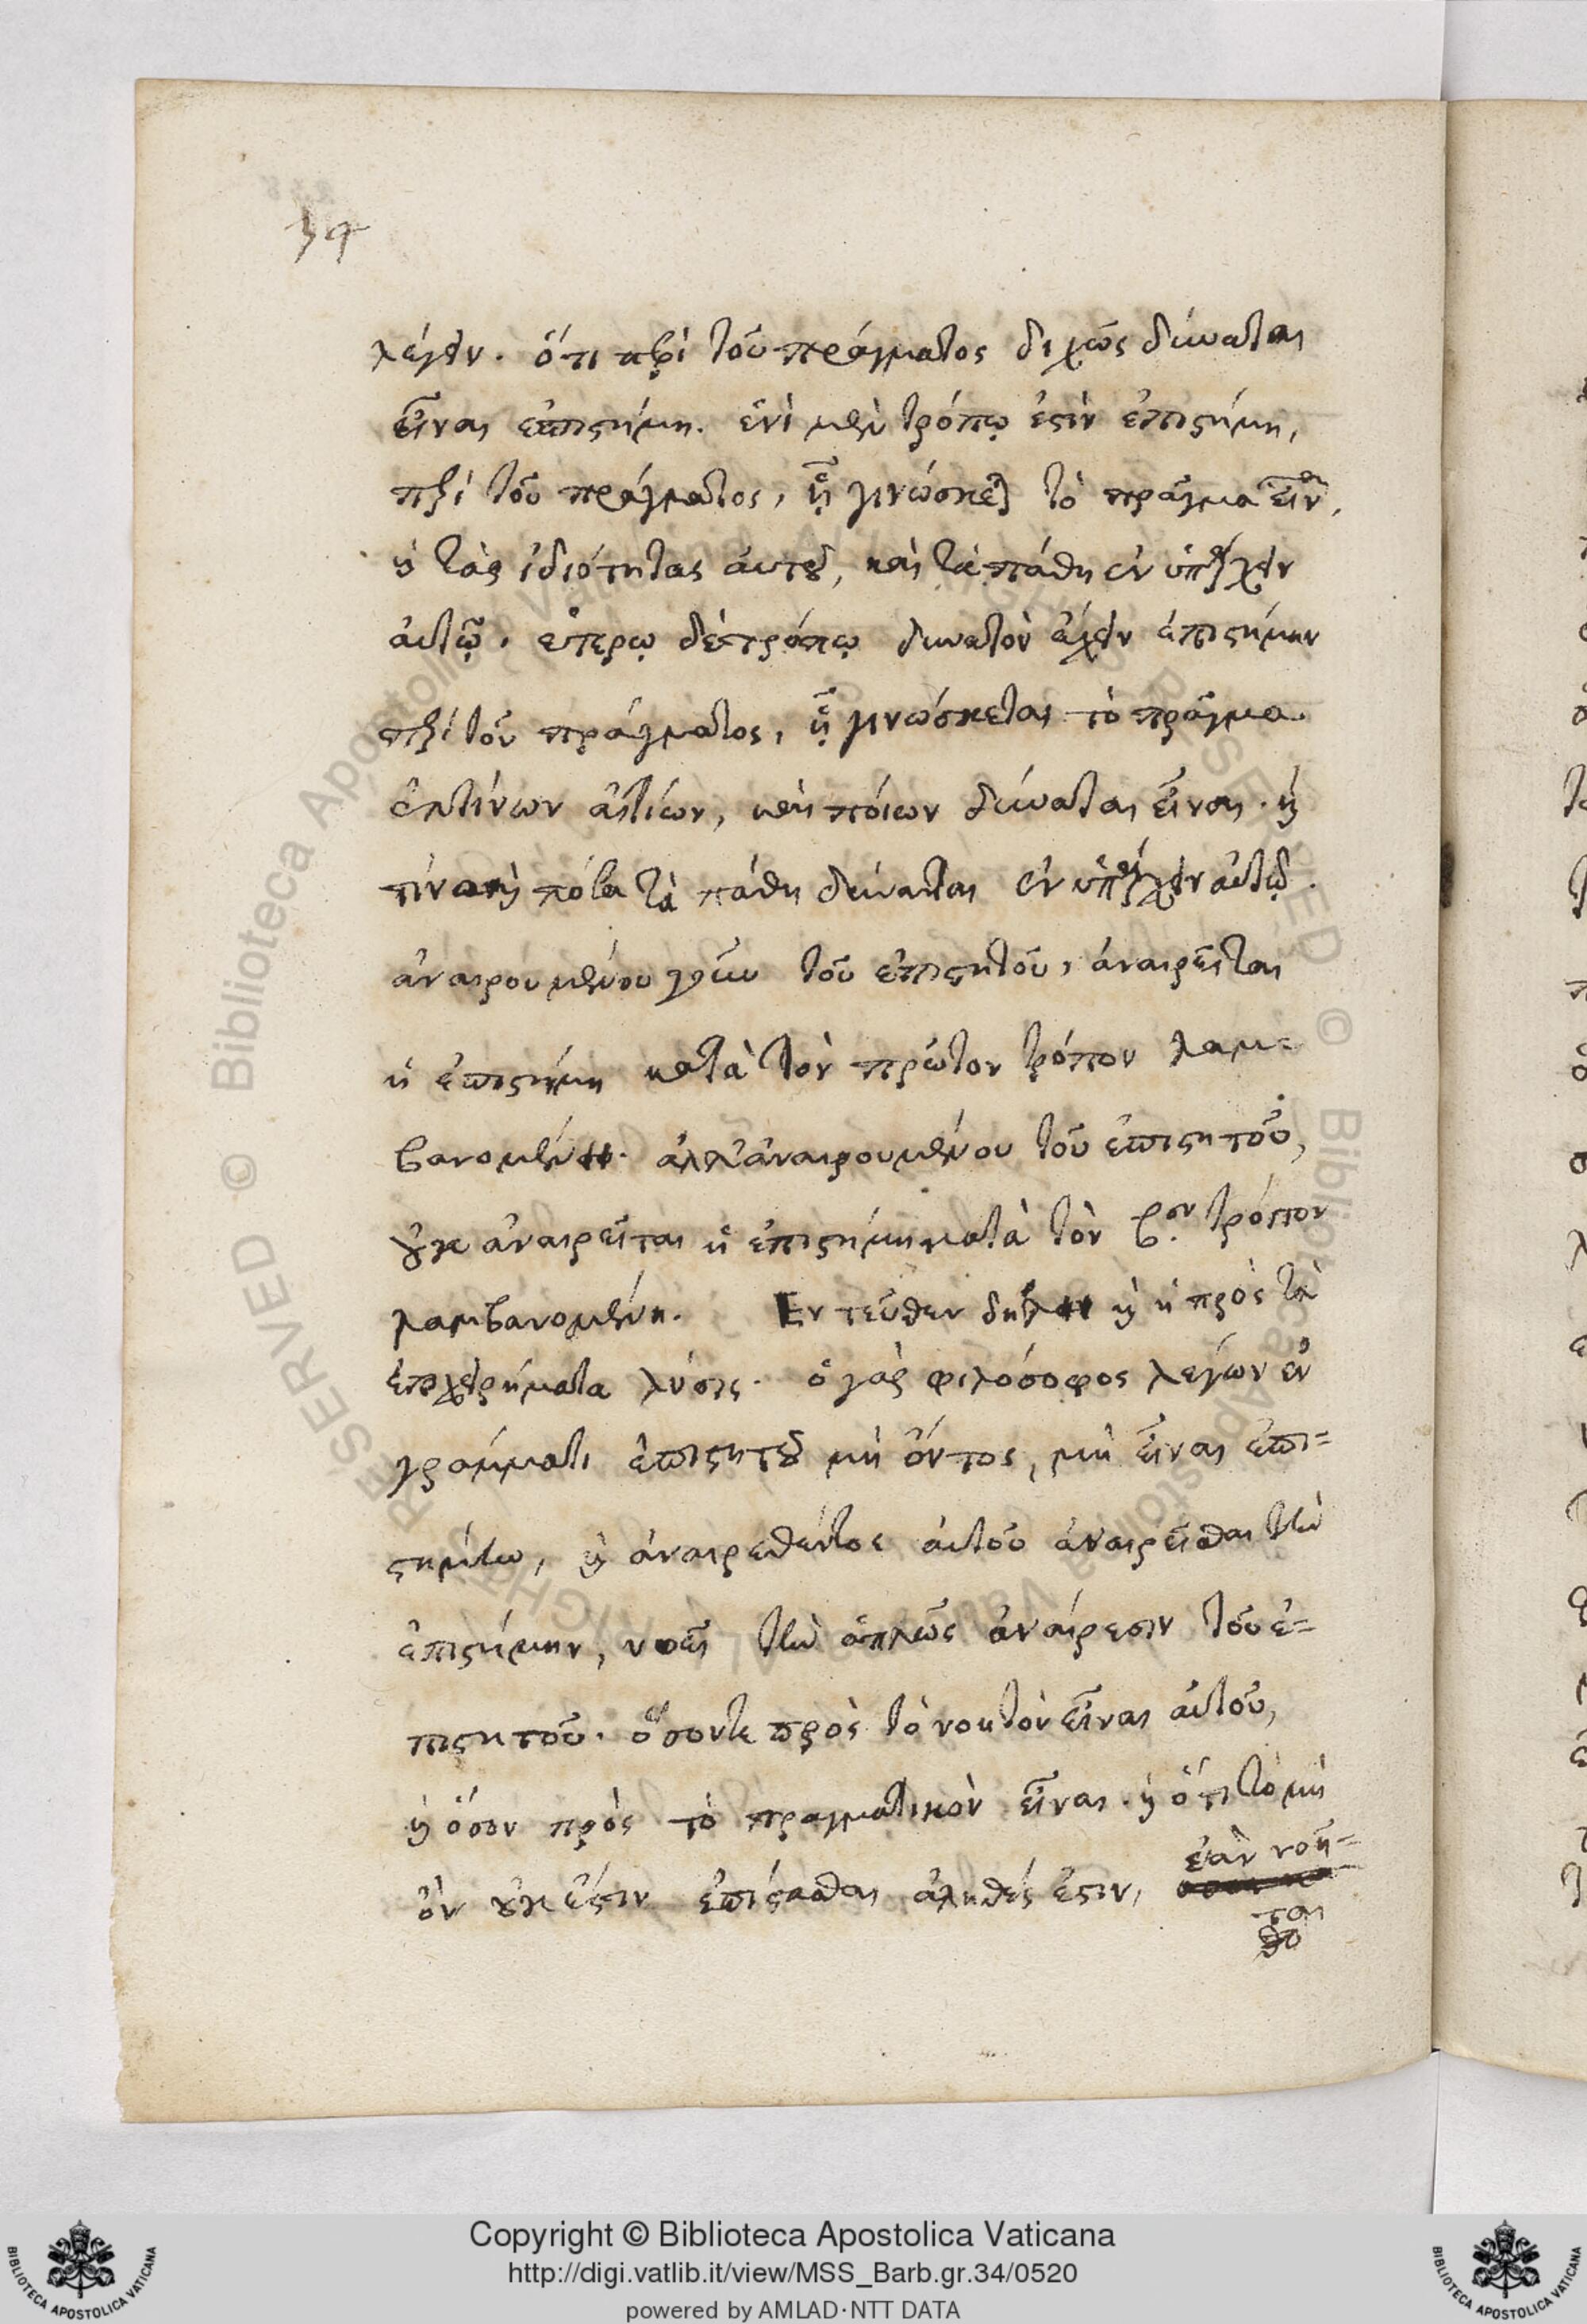 λέγειν. ὅτι περὶ τοῦ πράγματος διχῶς δύναται
εἶναι ἐπιστήμη. ἑνὶ μὲν τρόπῳ ἐστὶν ἐπιστήμη,
περὶ τοῦ πράγματος, ᾗ γινώσκει τὸ πρᾶγμα εἶναι,
καὶ τὰς ἰδιότητας αὐτοῦ, καὶ τὰ πάθη ἐνυπάρχειν
αὐτῷ. ἑτέρῳ δὲ τρόπῳ δυνατὸν ἔχειν ἐπιστήμην
περὶ τοῦ πράγματος, ᾗ γινώσκεται τὸ πρᾶγμα
ἐκ τίνων αἰτίων, καὶ ποίων δύναται εἶναι. καὶ
τίνα καὶ πόσα τὰ πάθη δύναται ἐνυπάρχειν αὐτῷ.
ἀναιρουμένου γοῦν τοῦ ἐπιστητοῦ, ἀναιρεῖται
ἡ ἐπιστήμη κατὰ τὸν πρῶτον τρόπον λαμ=
βανομένη. ἀλλ' ἀναιρουμένου τοῦ ἐπιστητοῦ,
οὐκ ἀναιρεῖται ἡ ἐπιστήμη κατὰ τὸν β.ον τρόπον
λαμβανομένη. Ἐντεῦθεν δήλη καὶ ἡ πρὸς τὰ
ἐπιχειρήματα λύσις. ὁ γὰρ φιλόσοφος λέγων ἐν
γράμματι ἐπιστητοῦ μὴ ὄντος, μὴ εἶναι ἐπι=
στήμην, καὶ ἀναιρεθέντος αὐτοῦ ἀναιρεῖσθαι τὴν
ἐπιστήμην, νοεῖ τὴν ἁπλῶς ἀναίρεσιν τοῦ ἐ=
πιστητοῦ. ὅσον τε πρὸς τὸ νοητὸν εἶναι αὐτοῦ,
καὶ ὅσον πρὸς τὸ πραγματικὸν εἶναι. καὶ ὅτι τὸ μὴ
ὂν οὐκ ἔστιν ἐπίστασθαι ἀληθές ἐστιν, ἐὰν νοῆ=
ται
Copyright © Biblioteca Apostolica Vaticana
http://digi.vatlib.it/view/MSS_Barb.gr.34/0520
powered by AMLAD·NTT DATA